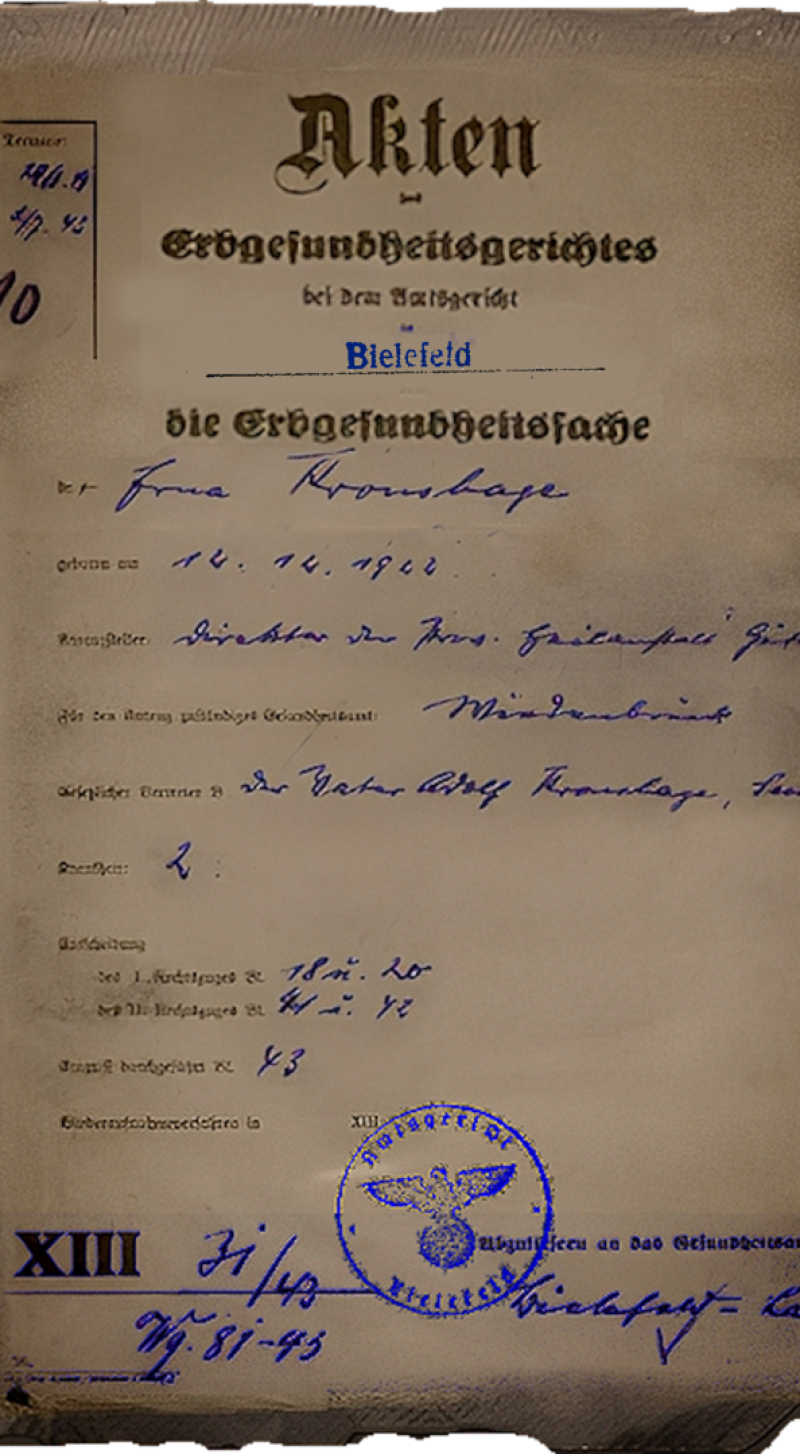 Termin:
5/7. 43
10
Akten
des
Erbgesundheitsgerichtes
bei dem Amtsgericht
in
Bielefeld
die Erbgesundheitssache
de r Erna Kronshage
geboren am 12. 12. 1922
Antragsteller: Direktor der Prov. Heilanstalt Güt
Für den Antrag zuständiges Gesundheitsamt: Wiedenbrück
Gesetzlicher Vertreter: der Vater Adolf Kronshage, Sen
2
Entscheidung
des I. Rechtszuges Bl. 18 u. 20
des II. Rechtszuges Bl. 41 u. 42
Eingriff durchgeführt Bl. 43
Wiederaufnahmeverfahren in XIII
Amtsgericht
Bielefeld
Abzuliefern an das Gesundheitsam
XIII 31/43
Bielefeld - La
Wg. 81-43